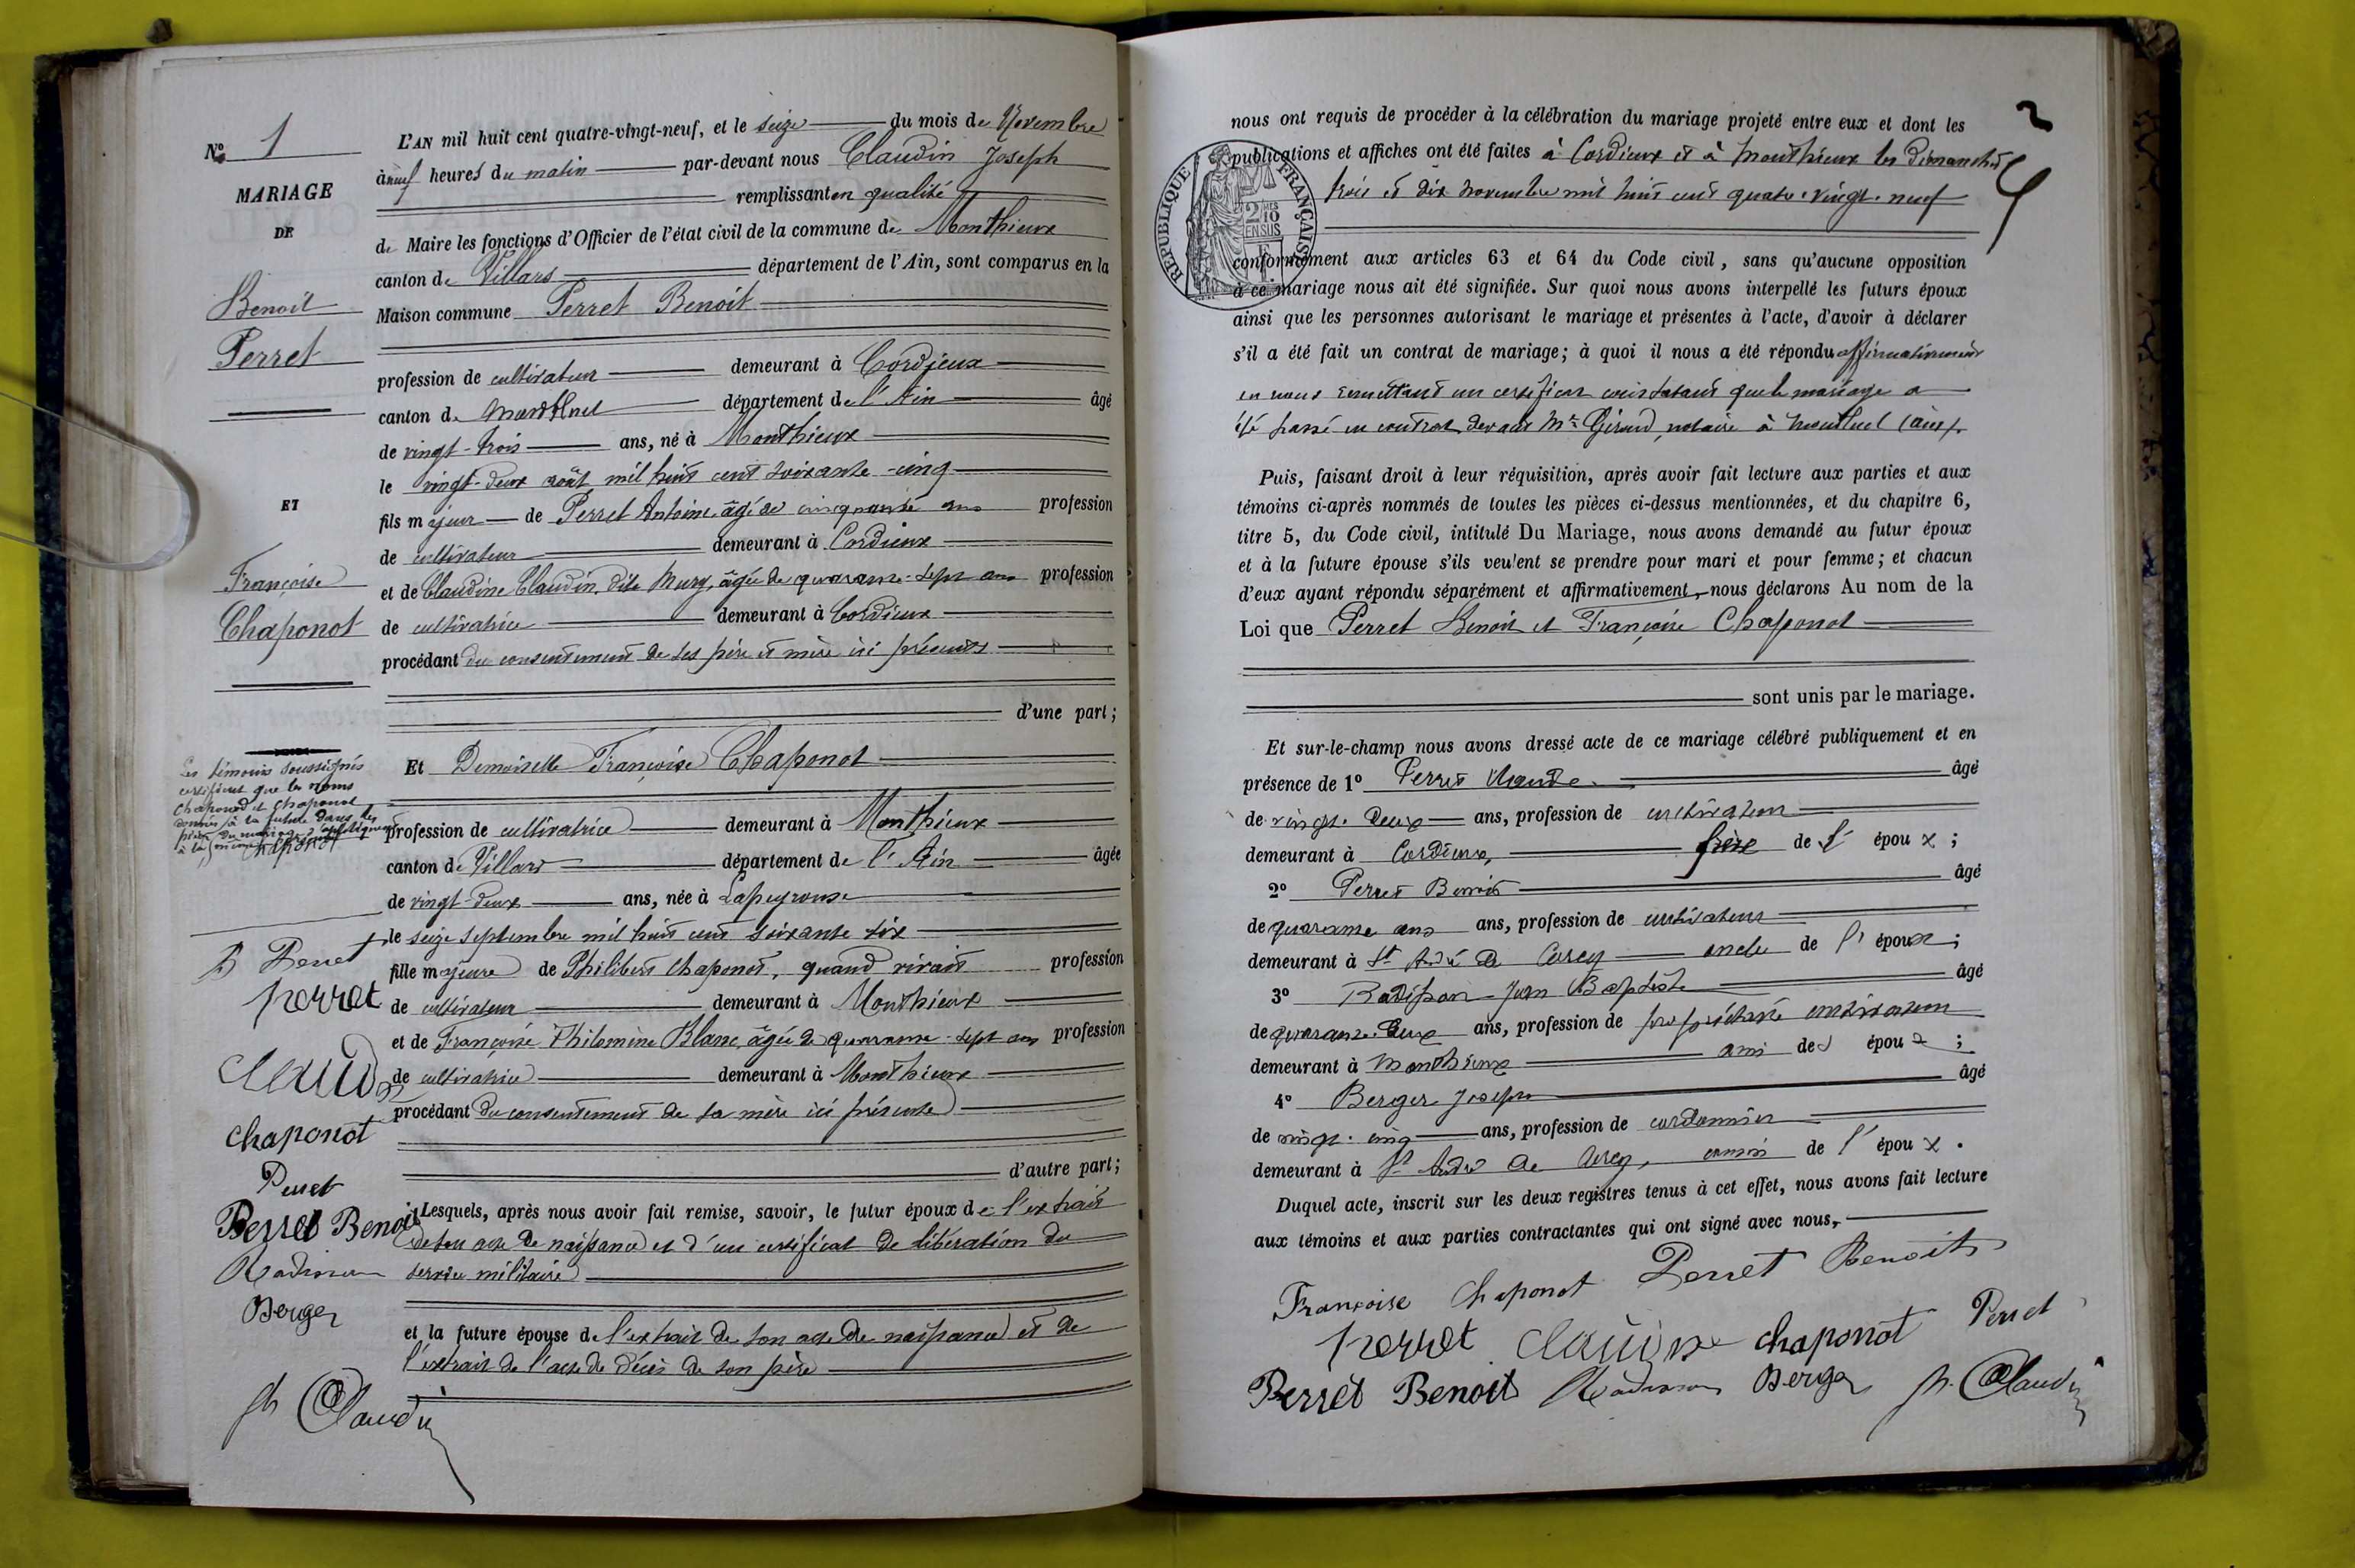 N° 1
MARIAGE
DE
Benoit
Perret
ET
Françoise
Chaponot
Les témoins soussignés
certifient que les noms
Chaponod et Chaponot
donnés à la future dans les
pièces du mariage s'appliquent
à la
Chaponot
B Perret
Perret
Chaponot
Perret
Perret Benoit
Radisson
Berger
Jh Claudin
L'AN mil huit cent quatre-vingt-neuf, et le seize du mois de Novembre
à neuf heures du matin par-devant nous Claudin Joseph
remplissant en qualité
de Maire les fonctions d'Officier de l'état civil de la commune de Monthieux
canton de Villars département de l'Ain, sont comparus en la
Maison commune Perret Benoit
profession de cultivateur demeurant à Cordieux
canton de Montluel département de l'Ain âgé
de vingt-trois ans, né à Monthieux
le vingt-deux août mil huit cent soixante-cinq
fils majeur de Perret Antoine, âgé de cinquante ans profession
de cultivateur demeurant à Cordieux
et de Claudine Claudin, dite Mury, âgée de quarante-sept ans profession
de cultivatrice demeurant à Cordieux
procédant du consentement de ses père et mère ici présents
d'une part ;
Et Demoiselle Françoise Chaponot
profession de cultivatrice demeurant à Monthieux
canton de Villars département de l'Ain âgée
de vingt-deux ans, née à Lapeyrouse
le seize septembre mil huit cent soixante six
fille majeure de Philibert Chaponot, quand vivait profession
de cultivateur demeurant à Monthieux
et de Françoise Philomine Blanc, âgée de quarante-sept ans profession
de cultivatrice demeurant à Monthieux
procédant du consentement de sa mère ici présente
d'autre part ;
Lesquels, après nous avoir fait remise, savoir, le futur époux de l'extrait
de son acte de naissance et d'un certificat de libération du
service militaire
et la future épouse de l'extrait de son acte de naissance et de
l'extrait de l'acte de décès de son père
2
nous ont requis de procéder à la célébration du mariage projeté entre eux et dont les
publications et affiches ont été faites à Cordieux et à Monthieux les dimanches
trois et dix novembre mil huit cent quatre-vingt-neuf
RÉPUBLIQUE FRANÇAISE
2/10
EN SUS
conformément aux articles 63 et 64 du Code civil, sans qu'aucune opposition
à ce mariage nous ait été signifiée. Sur quoi nous avons interpellé les futurs époux
ainsi que les personnes autorisant le mariage et présentes à l'acte, d'avoir à déclarer
s'il a été fait un contrat de mariage ; à quoi il nous a été répondu affirmativement
en nous remettant un certificat constatant que le mariage a
été passé en contrat devant Me Giraud, notaire à Montluel (Ain).
Puis, faisant droit à leur réquisition, après avoir fait lecture aux parties et aux
témoins ci-après nommés de toutes les pièces ci-dessus mentionnées, et du chapitre 6,
titre 5, du Code civil, intitulé Du Mariage, nous avons demandé au futur époux
et à la future épouse s'ils veulent se prendre pour mari et pour femme ; et chacun
d'eux ayant répondu séparément et affirmativement, nous déclarons Au nom de la
Loi que Perret Benoit et Françoise Chaponot
sont unis par le mariage.
Et sur-le-champ nous avons dressé acte de ce mariage célébré publiquement et en
présence de 1° Perret Claude âgé
de vingt-deux ans, profession de cultivateur
demeurant à Cordieux, frère de l'époux ;
2° Perret Benoit âgé
de quarante ans ans, profession de cultivateur
demeurant à St André de Corcy oncle de l'époux ;
3° Radisson Jean Baptiste âgé
de quarante-deux ans, profession de propriétaire cultivateur
demeurant à Monthieux ami de l'époux ;
4° Berger Joseph âgé
de vingt-cinq ans, profession de cordonnier
demeurant à St André de Corcy, cousin de l'époux.
Duquel acte, inscrit sur les deux registres tenus à cet effet, nous avons fait lecture
aux témoins et aux parties contractantes qui ont signé avec nous,
Françoise Chaponot Perret Benoit
Perret Claudine Chaponot Perret
Perret Benoit Radisson Berger Jh Claudin